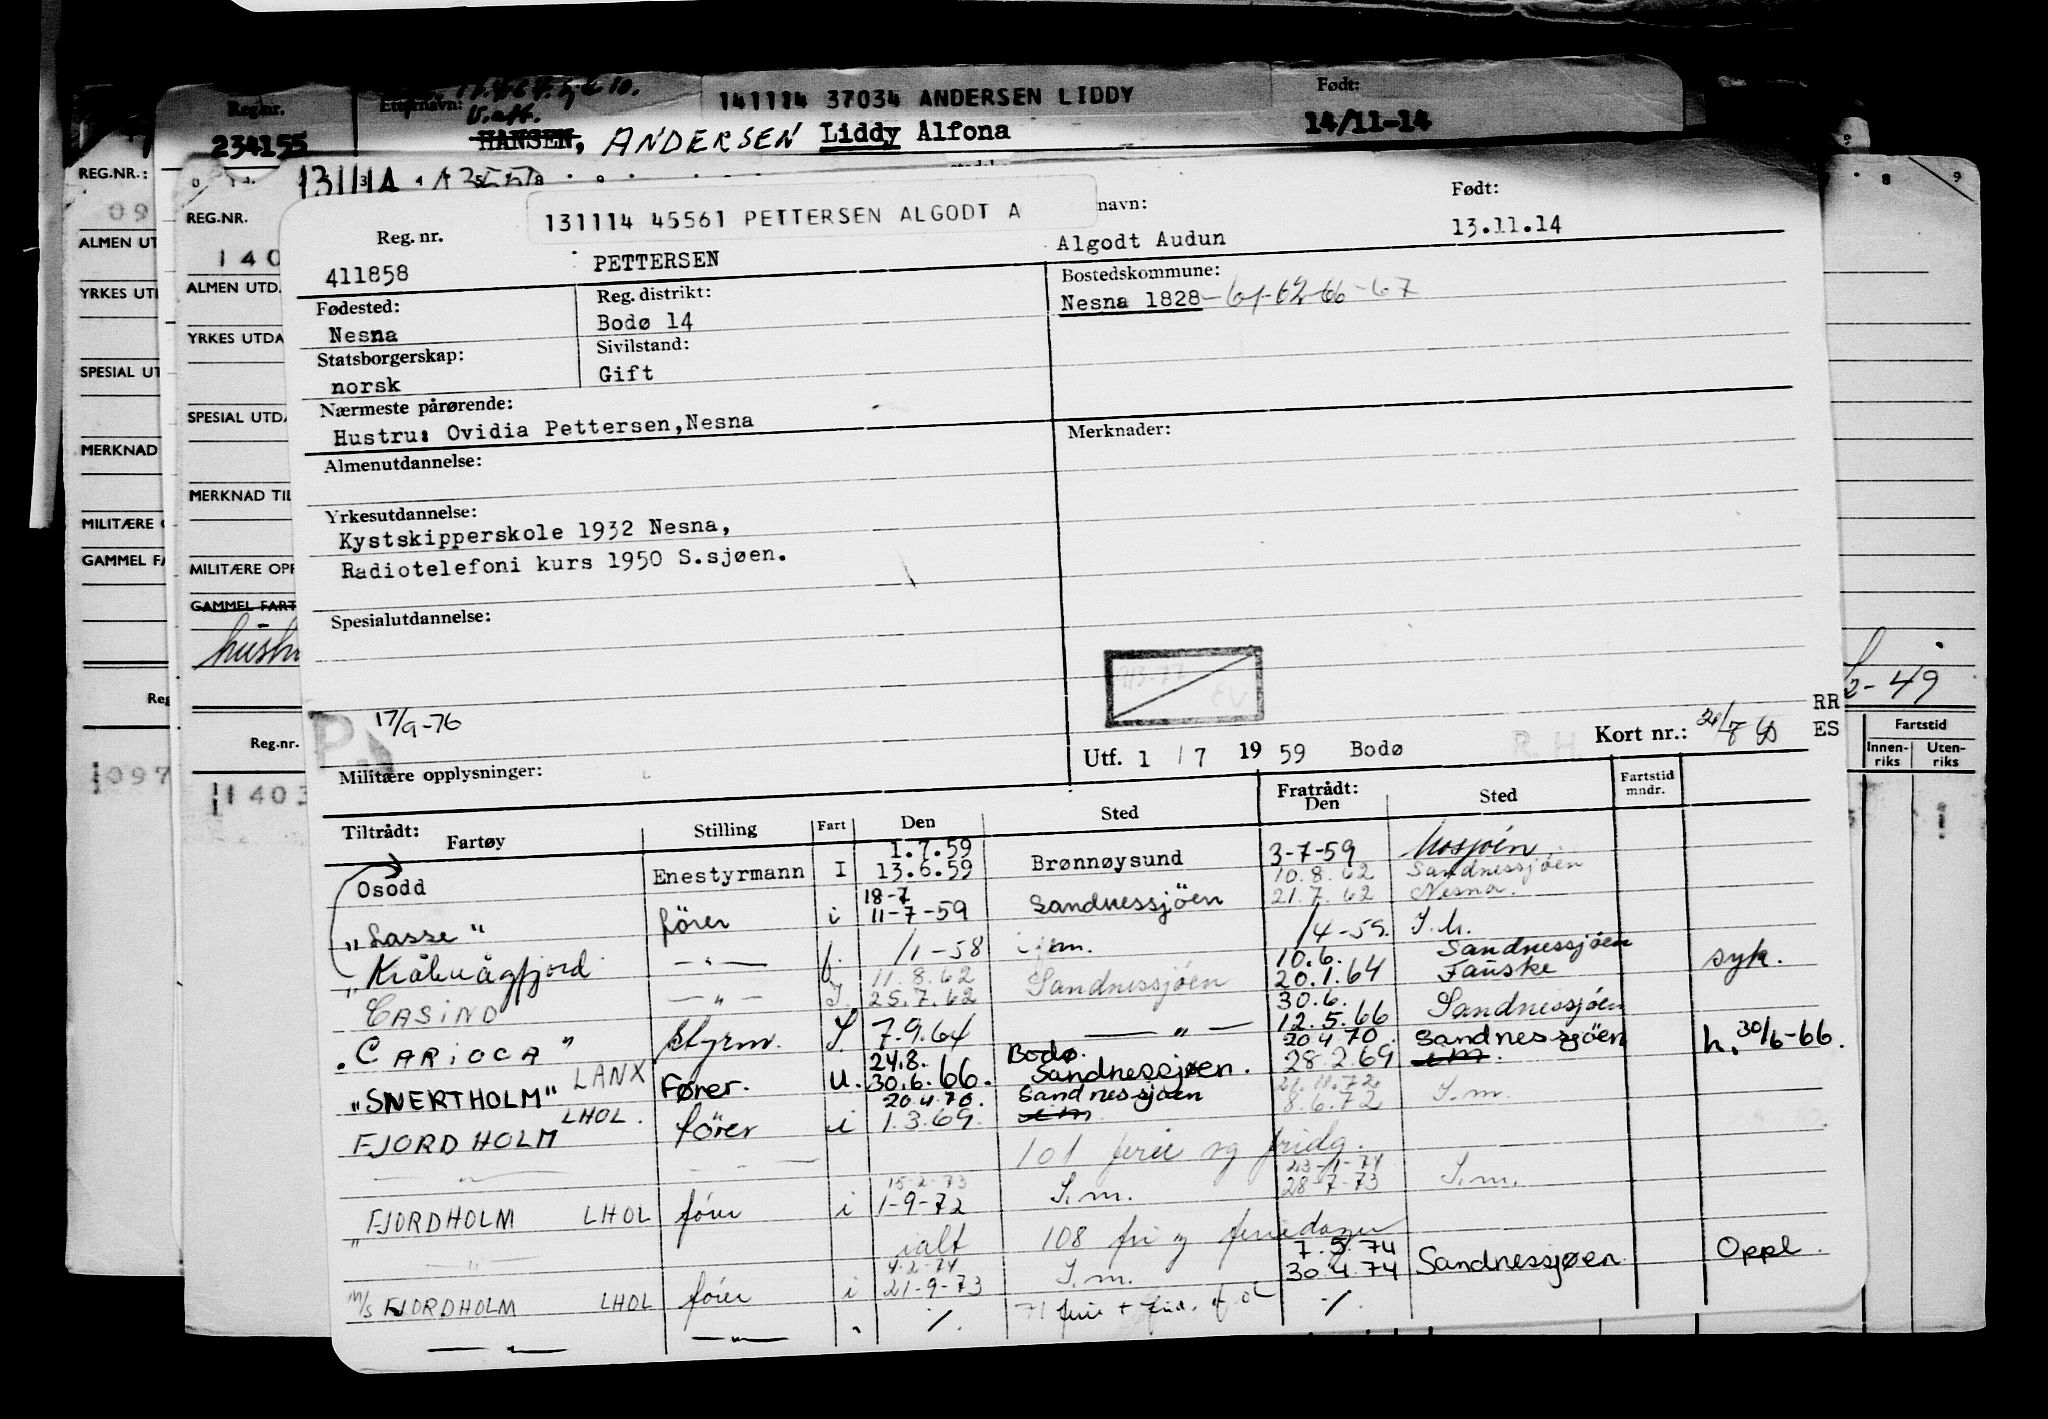 Reg.nr.
234155
Etternavn:
141114 37034 ANDERSEN LIDDY
Født:
14/11-14
HANSEN, ANDERSEN Liddy Alfona
REG.NR.:
09
ALMEN UT
YRKES UT
SPESIAL UT
MERKNAD
MILITÆRE
GAMMEL FA
Reg
097
REG.NR.
140
ALMEN UTD.
YRKES UTDA
SPESIAL UTDA
MERKNAD TIL
MILITÆRE OPP
GAMMEL FART
Reg.nr.
1403
131114 45561 PETTERSEN ALGODT A
navn:
Født:
Reg. nr.
411858
PETTERSEN
Algodt Audun
13.11.14
Fødested:
Nesna
Reg. distrikt:
Bodø 14
Bostedskommune:
Nesna 1828-61-62-66-67
Statsborgerskap:
norsk
Sivilstand:
Gift
Nærmeste pårørende:
Hustru: Ovidia Pettersen,Nesna
Merknader:
Almenutdannelse:
Yrkesutdannelse:
Kystskipperskole 1932 Nesna,
Radiotelefoni kurs 1950 S.sjøen.
Spesialutdannelse:
17/9-76
Militære opplysninger:
Utf. 1 / 7 19 59 Bodø
R.H
Kort nr.:
RR
ES
2-49
Fartstid
Innen-
riks
Uten-
riks
Tiltrådt:
Fartøy
Stilling
Fart
Den
Sted
Fratrådt:
Den
Sted
Fartstid
mndr.
Osodd Enestyrmann I 1.7.59 13.6.59 Brønnøysund 3-7-59 Mosjøen
10.8.62 Sandnessjöen
"Lasse" förer i 18-7 11-7-59 Sandnessjöen 21.7.62 Nesna.
"Kråkvågfjord — " — f. /1-58 /4-59. S.m.
CASINO — " — I. 11.8.62 25.7.62 Sandnessjöen 10.6. 20.1.64 Sandnessjöen Fauske syk.
"CARIOCA" styrm. I. 7.9.64 — " — 30.6. 12.5.66 Sandnessjöen
"SNERTHOLM" LANX Fører. U. 24.8. 30.6.66. Bodø. Sandnessjøen. 20.4.70. 28.2.69 Sandnessjöen h. 30/6-66.
FJORDHOLM LHOL. förer i 20.4.70. 1.3.69. Sandnessjöen 21.11.72 8.6.72 S.m.
— " — — " — 101 ferie og fridg.
"FJORDHOLM LHOL förer i 15-2-73 1-9-72 S.m. 23-1-74 28-7-73 S.m.
— " — ialt 108 fri og feriedager
M/S FJORDHOLM LHOL förer i 4-2-74 21-9-73 S.m. 7.5.74 30.4.74 Sandnessjøen Oppl.
— " — — " — " ./. 71 ferie + frid. ./.